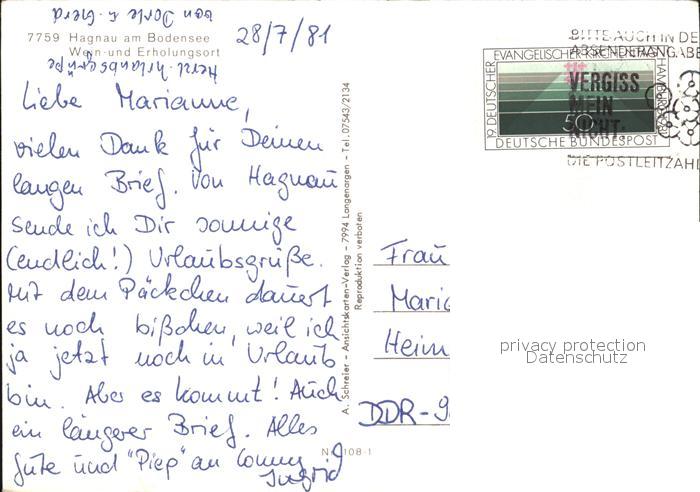 7759 Hagnau am Bodensee
Wein- und Erholungsort
28/7/81
Herzl. Urlaubsgrüße
von Dorle u. Gerd
Liebe Marianne,
vielen Dank für Deinen
langen Brief. Von Hagnau
sende ich Dir sonnige
(endlich!) Urlaubsgrüße.
Mit dem Päckchen dauert
es noch bißchen, weil ich
ja jetzt noch in Urlaub
bin. Aber es kommt! Auch
ein längerer Brief. Alles
Gute und "Piep" an Conny
Ingrid
A. Schreier - Ansichtskarten-Verlag - 7994 Langenargen - Tel. 07543/2134
Reproduktion verboten
108-1
19. DEUTSCHER
EVANGELISCHER KIRCHENTAG
HAMBURG
50
DEUTSCHE BUNDESPOST
BITTE AUCH IN DE
ABSENDERANGABE
VERGISS
MEIN
NICHT:
DIE POSTLEITZAHL
Frau
Heim
DDR-9
privacy protection
Datenschutz